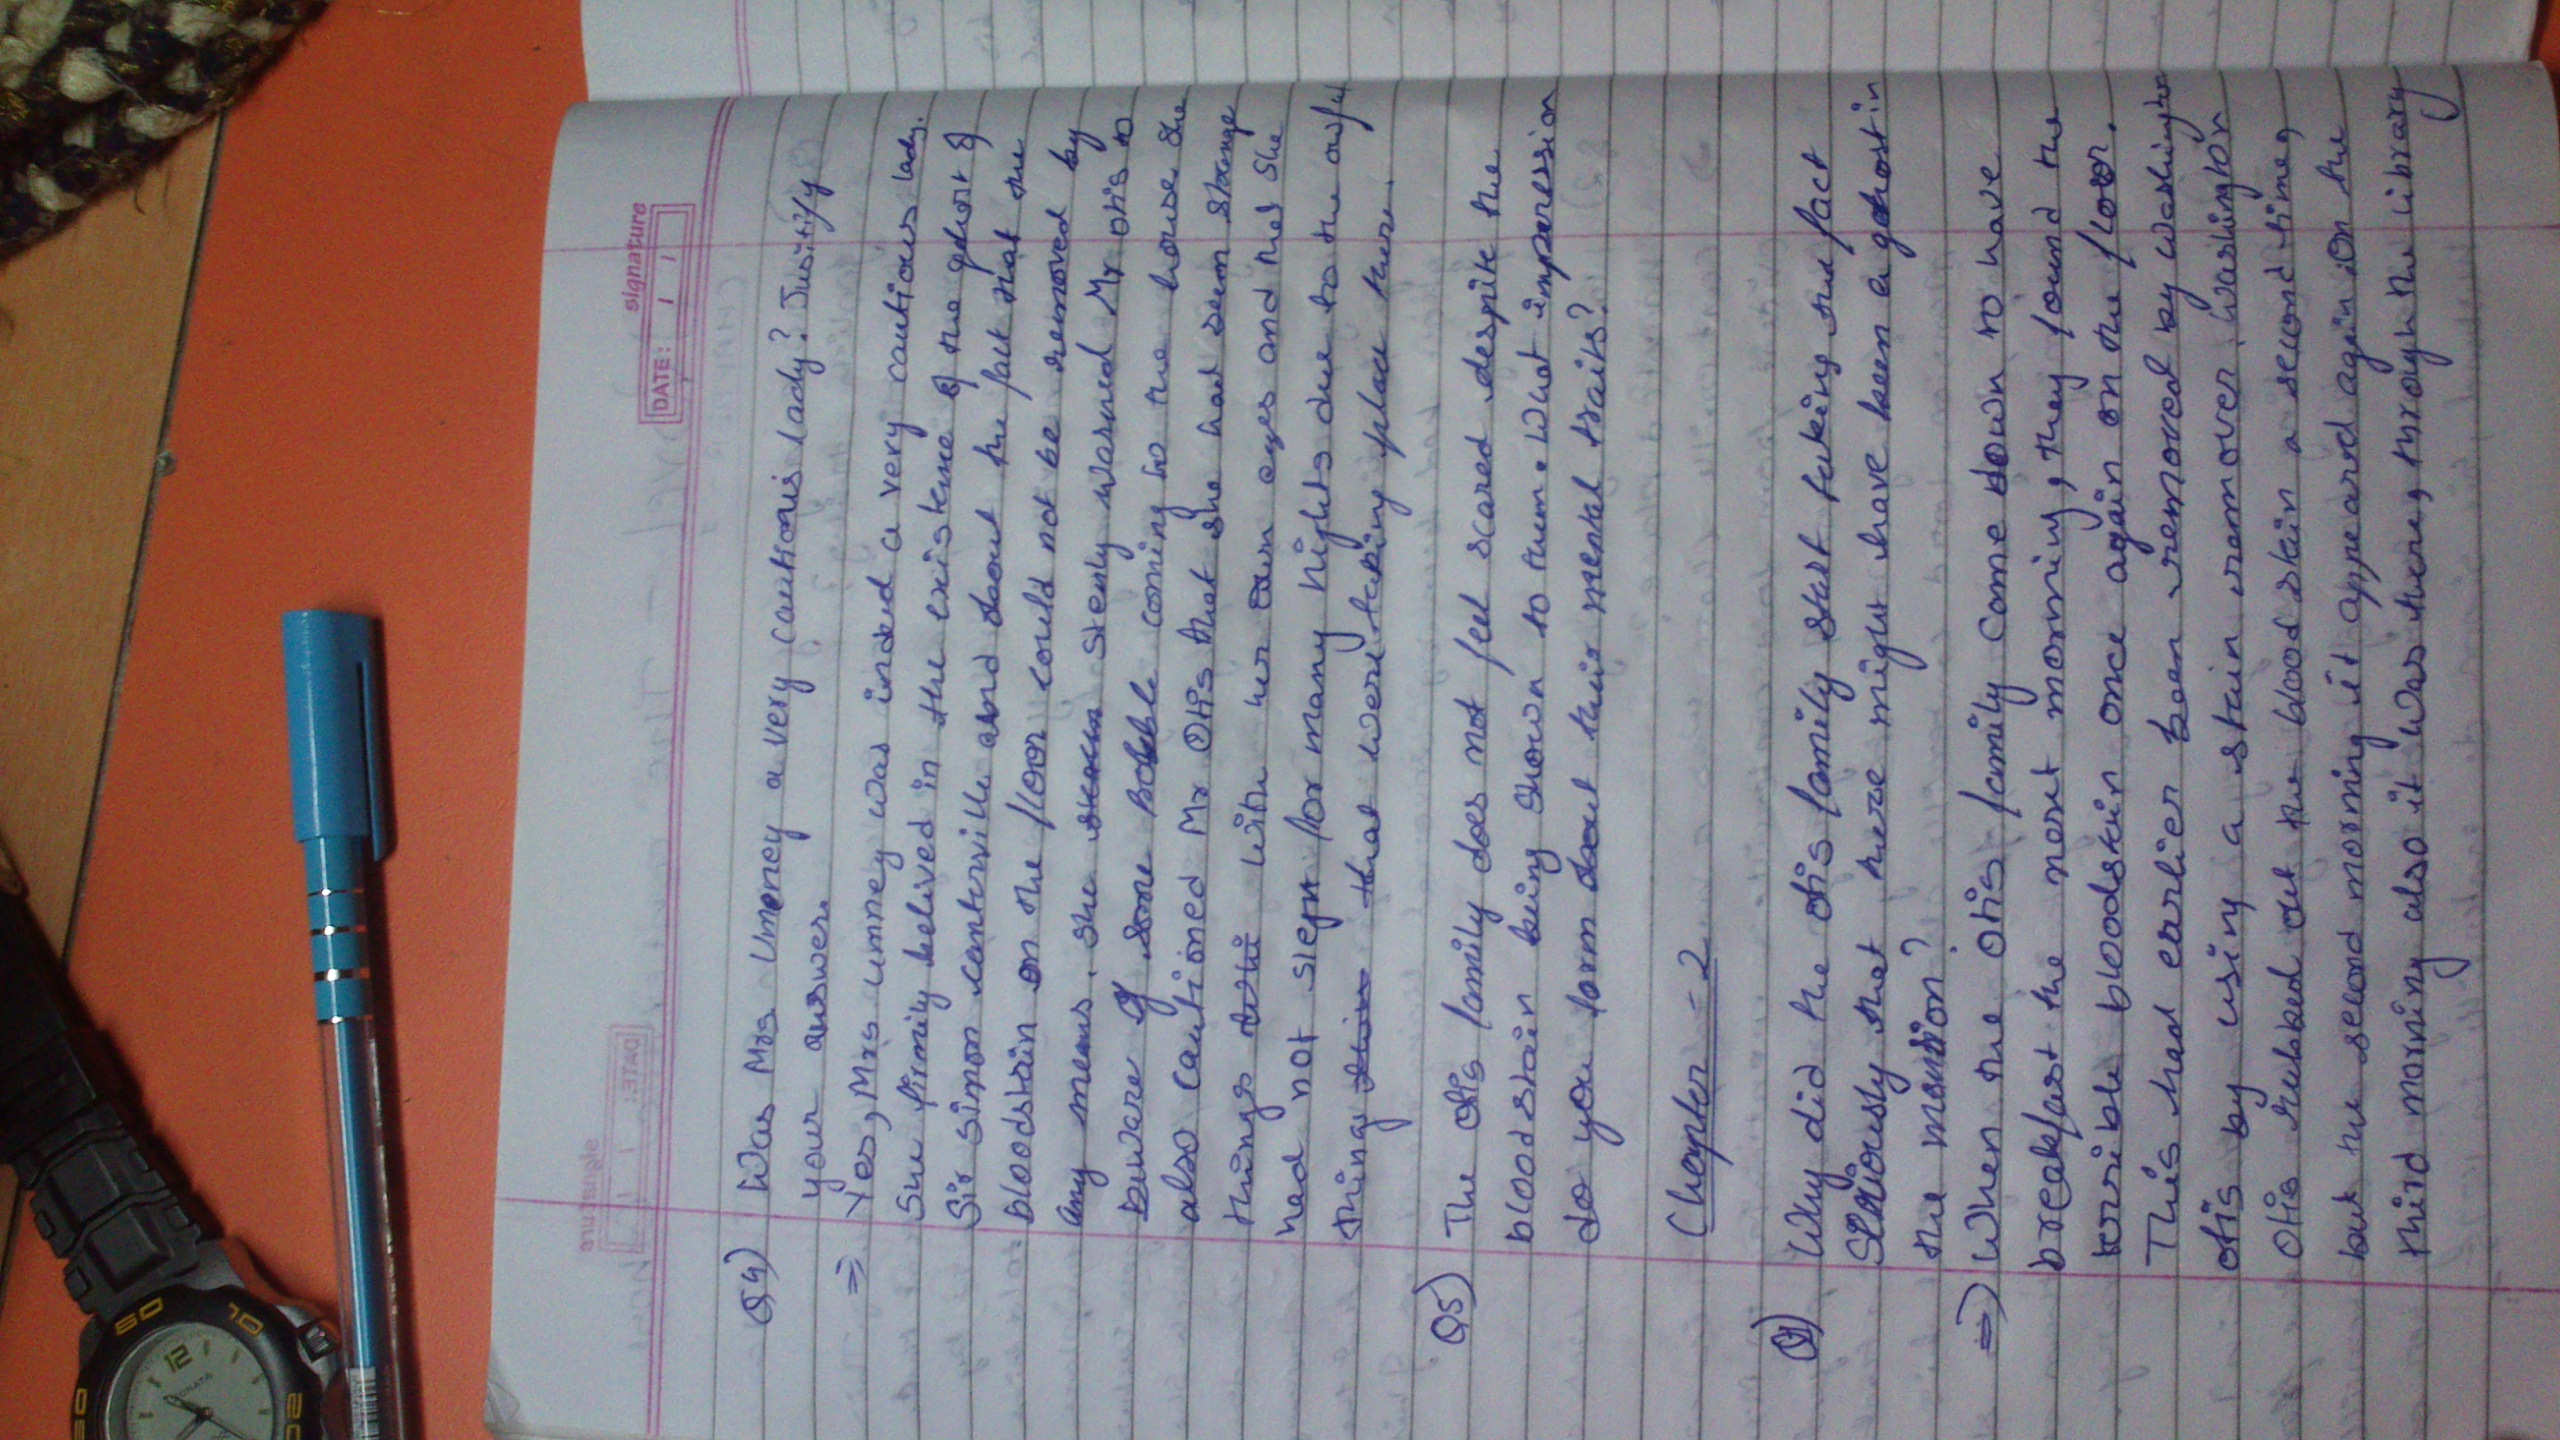 signature
DATE: / /
Q4) Was Mrs Umoney a very cautious lady? Jusitify
your answer.
⇒ Yes, Mrs umney was indeed a very cautious lady.
She firmily belived in the existence of the gehost of
Sir Simon canterville and about the fact that the
bloodstain on the floor could not be removed by
any means. She stenly warned Mr otis to
beware of some coming to the house She
also cautioned Mr Otis that she had seen strange
things with her own eyes and that She
had not slept for many nights due to the awful
things that were taking place there.
Q5) The Otis family does not feel scared despite the
bloodstain being shown to them. What imperession
do you form about their mental traits?
Chapter - 2
Q1) Why did the Otis family start taking the fact
Seriously that there might have been a gehost in
the mantion?
⇒ When the Otis family come down to have
breakfast the next morning, they found the
terrible bloodstain once again on the floor.
This had earlier been removed by Washington
otis by using a stain remover. Washington
Otis rubbed out the blood stain a second time,
but the second morning it appeared again. On the
third morning also it was there, through the library
60
12
10
50
DATE: / /
signature